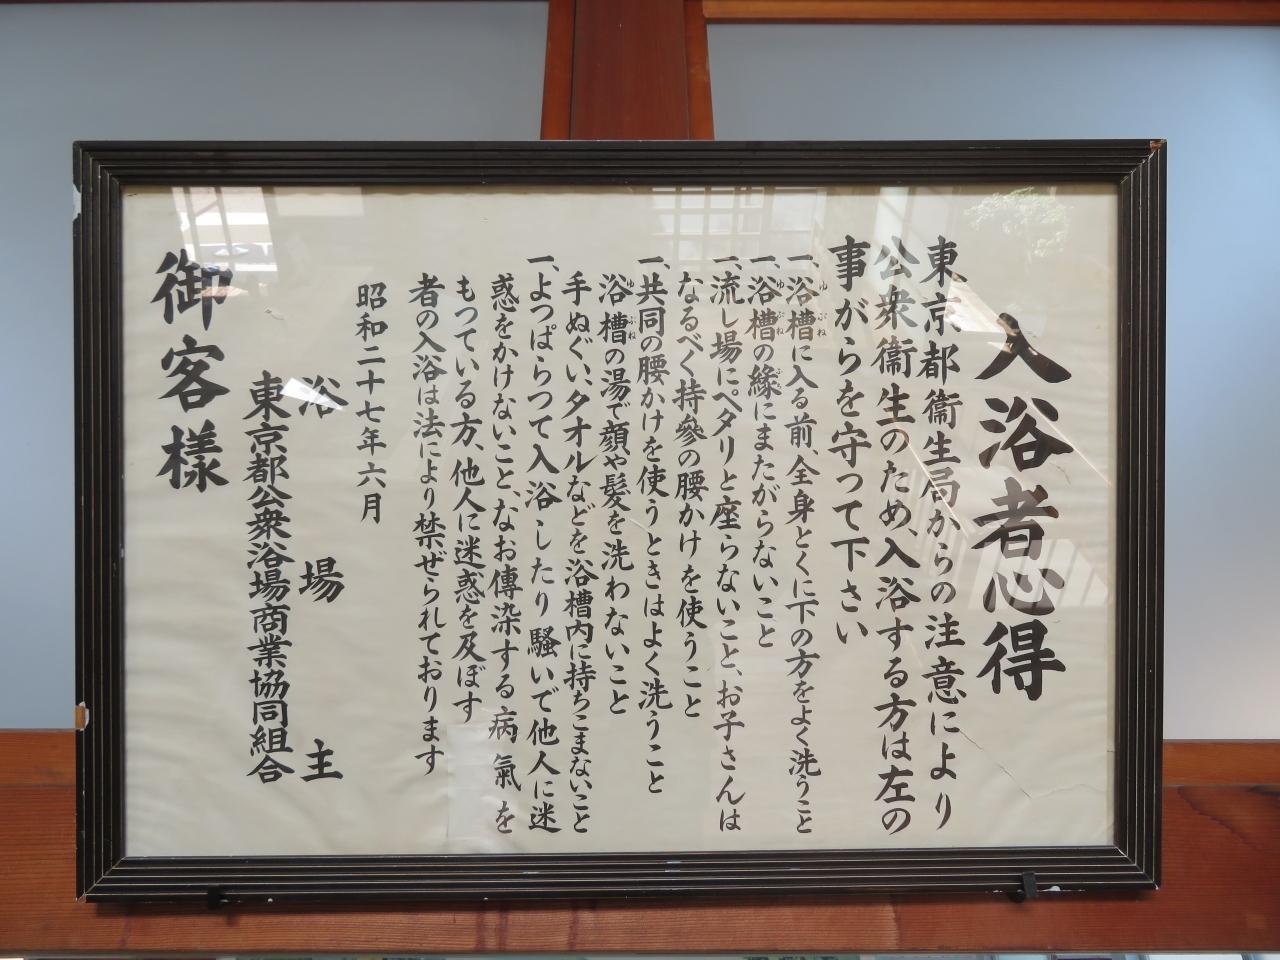 入浴者心得
東京都衞生局からの注意により
公衆衞生のため、入浴する方は左の
事がらを守つて下さい
一、浴槽に入る前、全身とくに下の方をよく洗うこと
ゆぶね
一、浴槽の緣にまたがらないこと
ゆぶね ふち
一、流し場にペタリと座らないこと、お子さんは
なるべく持參の腰かけを使うこと
一、共同の腰かけを使うときはよく洗うこと
浴槽の湯で顔や髮を洗わないこと
ゆぶね
手ぬぐい、タオルなどを浴槽内に持ちこまないこと
一、よつぱらつて入浴したり騷いで他人に迷
惑をかけないこと、なお傳染する病氣を
もつている方、他人に迷惑を及ぼす
者の入浴は法により禁ぜられております
昭和二十七年六月
浴場主
東京都公衆浴場商業協同組合
御客樣